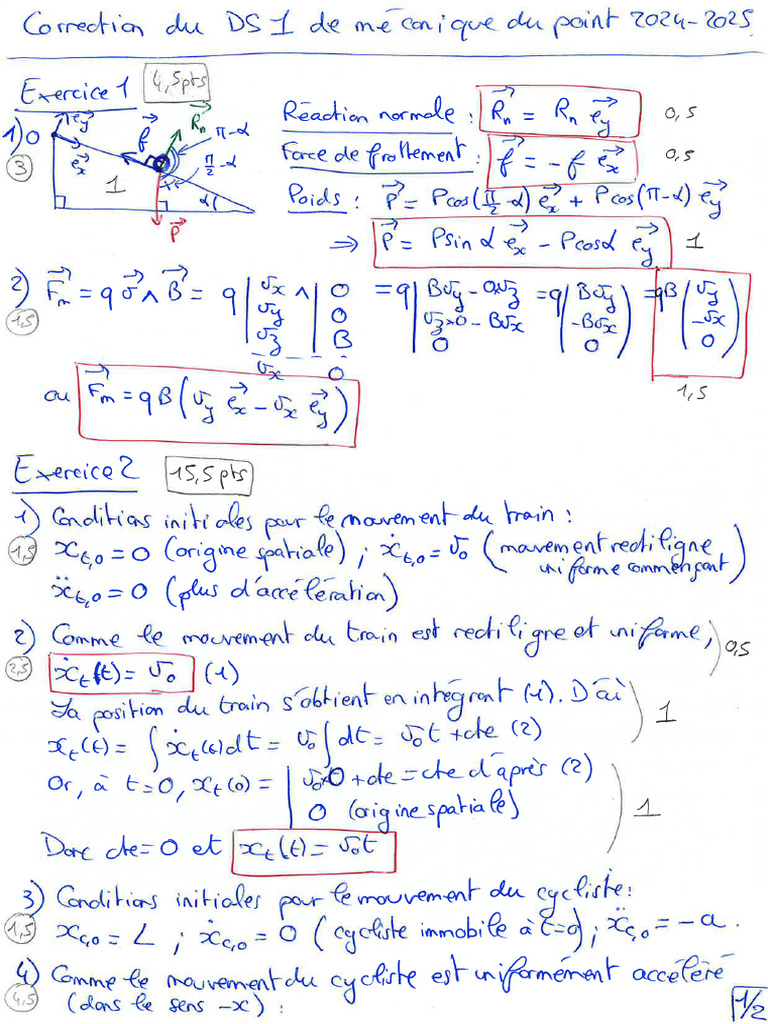 Correction du DS 1 de mécanique du point 2024-2025
Exercice 1 4,5pts
1) O
3
e⃗y
e⃗x
f⃗
R⃗n
π-α
π/2-α
1
α
P⃗
Réaction normale : R⃗n = Rn e⃗y 0,5
Force de frottement : f⃗ = -f e⃗x 0,5
Poids : P⃗ = Pcos(π/2-α) e⃗x + Pcos(π-α) e⃗y
⇒ P⃗ = Psinα e⃗x - Pcosα e⃗y 1
2) F⃗m = q v⃗ ∧ B⃗ = q | vx ∧ | 0 = q | Bvy - 0×vz = q | Bvy = qB ( vy
1,5
vy 0 vz×0 - Bvx -Bvx -vx
vz B 0 0 0
vx 0
1,5
ou F⃗m = qB(vy e⃗x - vx e⃗y)
Exercice 2 15,5pts
1) Conditions initiales pour le mouvement du train :
1,5 xt,0 = 0 (origine spatiale) ; ẋt,0 = v0 (mouvement rectiligne
uniforme commençant)
ẍt,0 = 0 (plus d'accélération)
2) Comme le mouvement du train est rectiligne et uniforme, 0,5
2,5 ẋt(t) = v0 (1)
La position du train s'obtient en intégrant (1). D'où 1
xt(t) = ∫ẋt(t)dt = v0∫dt = v0t + cte (2)
Or, à t=0, xt(0) = | v0×0 + cte = cte d'après (2)
0 (origine spatiale) 1
Donc cte = 0 et xt(t) = v0t
3) Conditions initiales pour le mouvement du cycliste :
1,5 xc,0 = L ; ẋc,0 = 0 (cycliste immobile à t=0) ; ẍc,0 = -a.
4) Comme le mouvement du cycliste est uniformément accéléré
4,5 (dans le sens -x) :
1/2